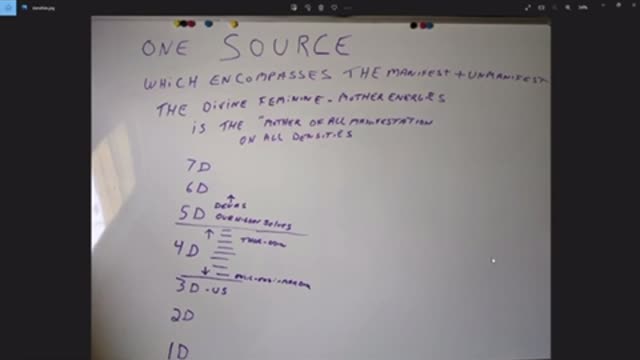 ONE SOURCE
WHICH ENCOMPASSES THE MANIFEST + UNMANIFEST
THE DIVINE FEMININE - MOTHER ENERGIES
IS THE "MOTHER OF ALL MANIFESTATION
ON ALL DENSITIES
7D
6D
DEVAS
5D OUR HIGHER SELVES
4D
3D - US
2D
1D